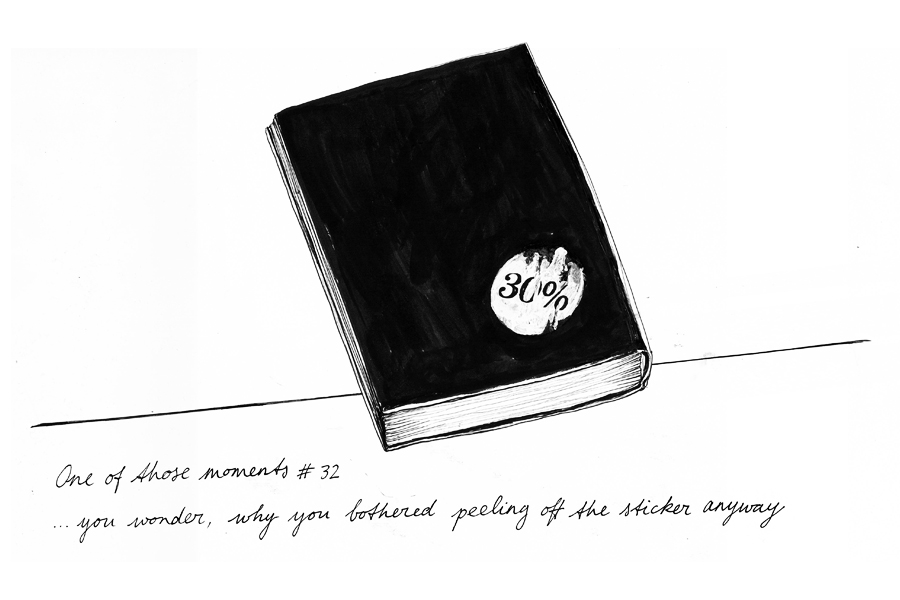 30%
One of those moments # 32
... you wonder, why you bothered peeling off the sticker anyway